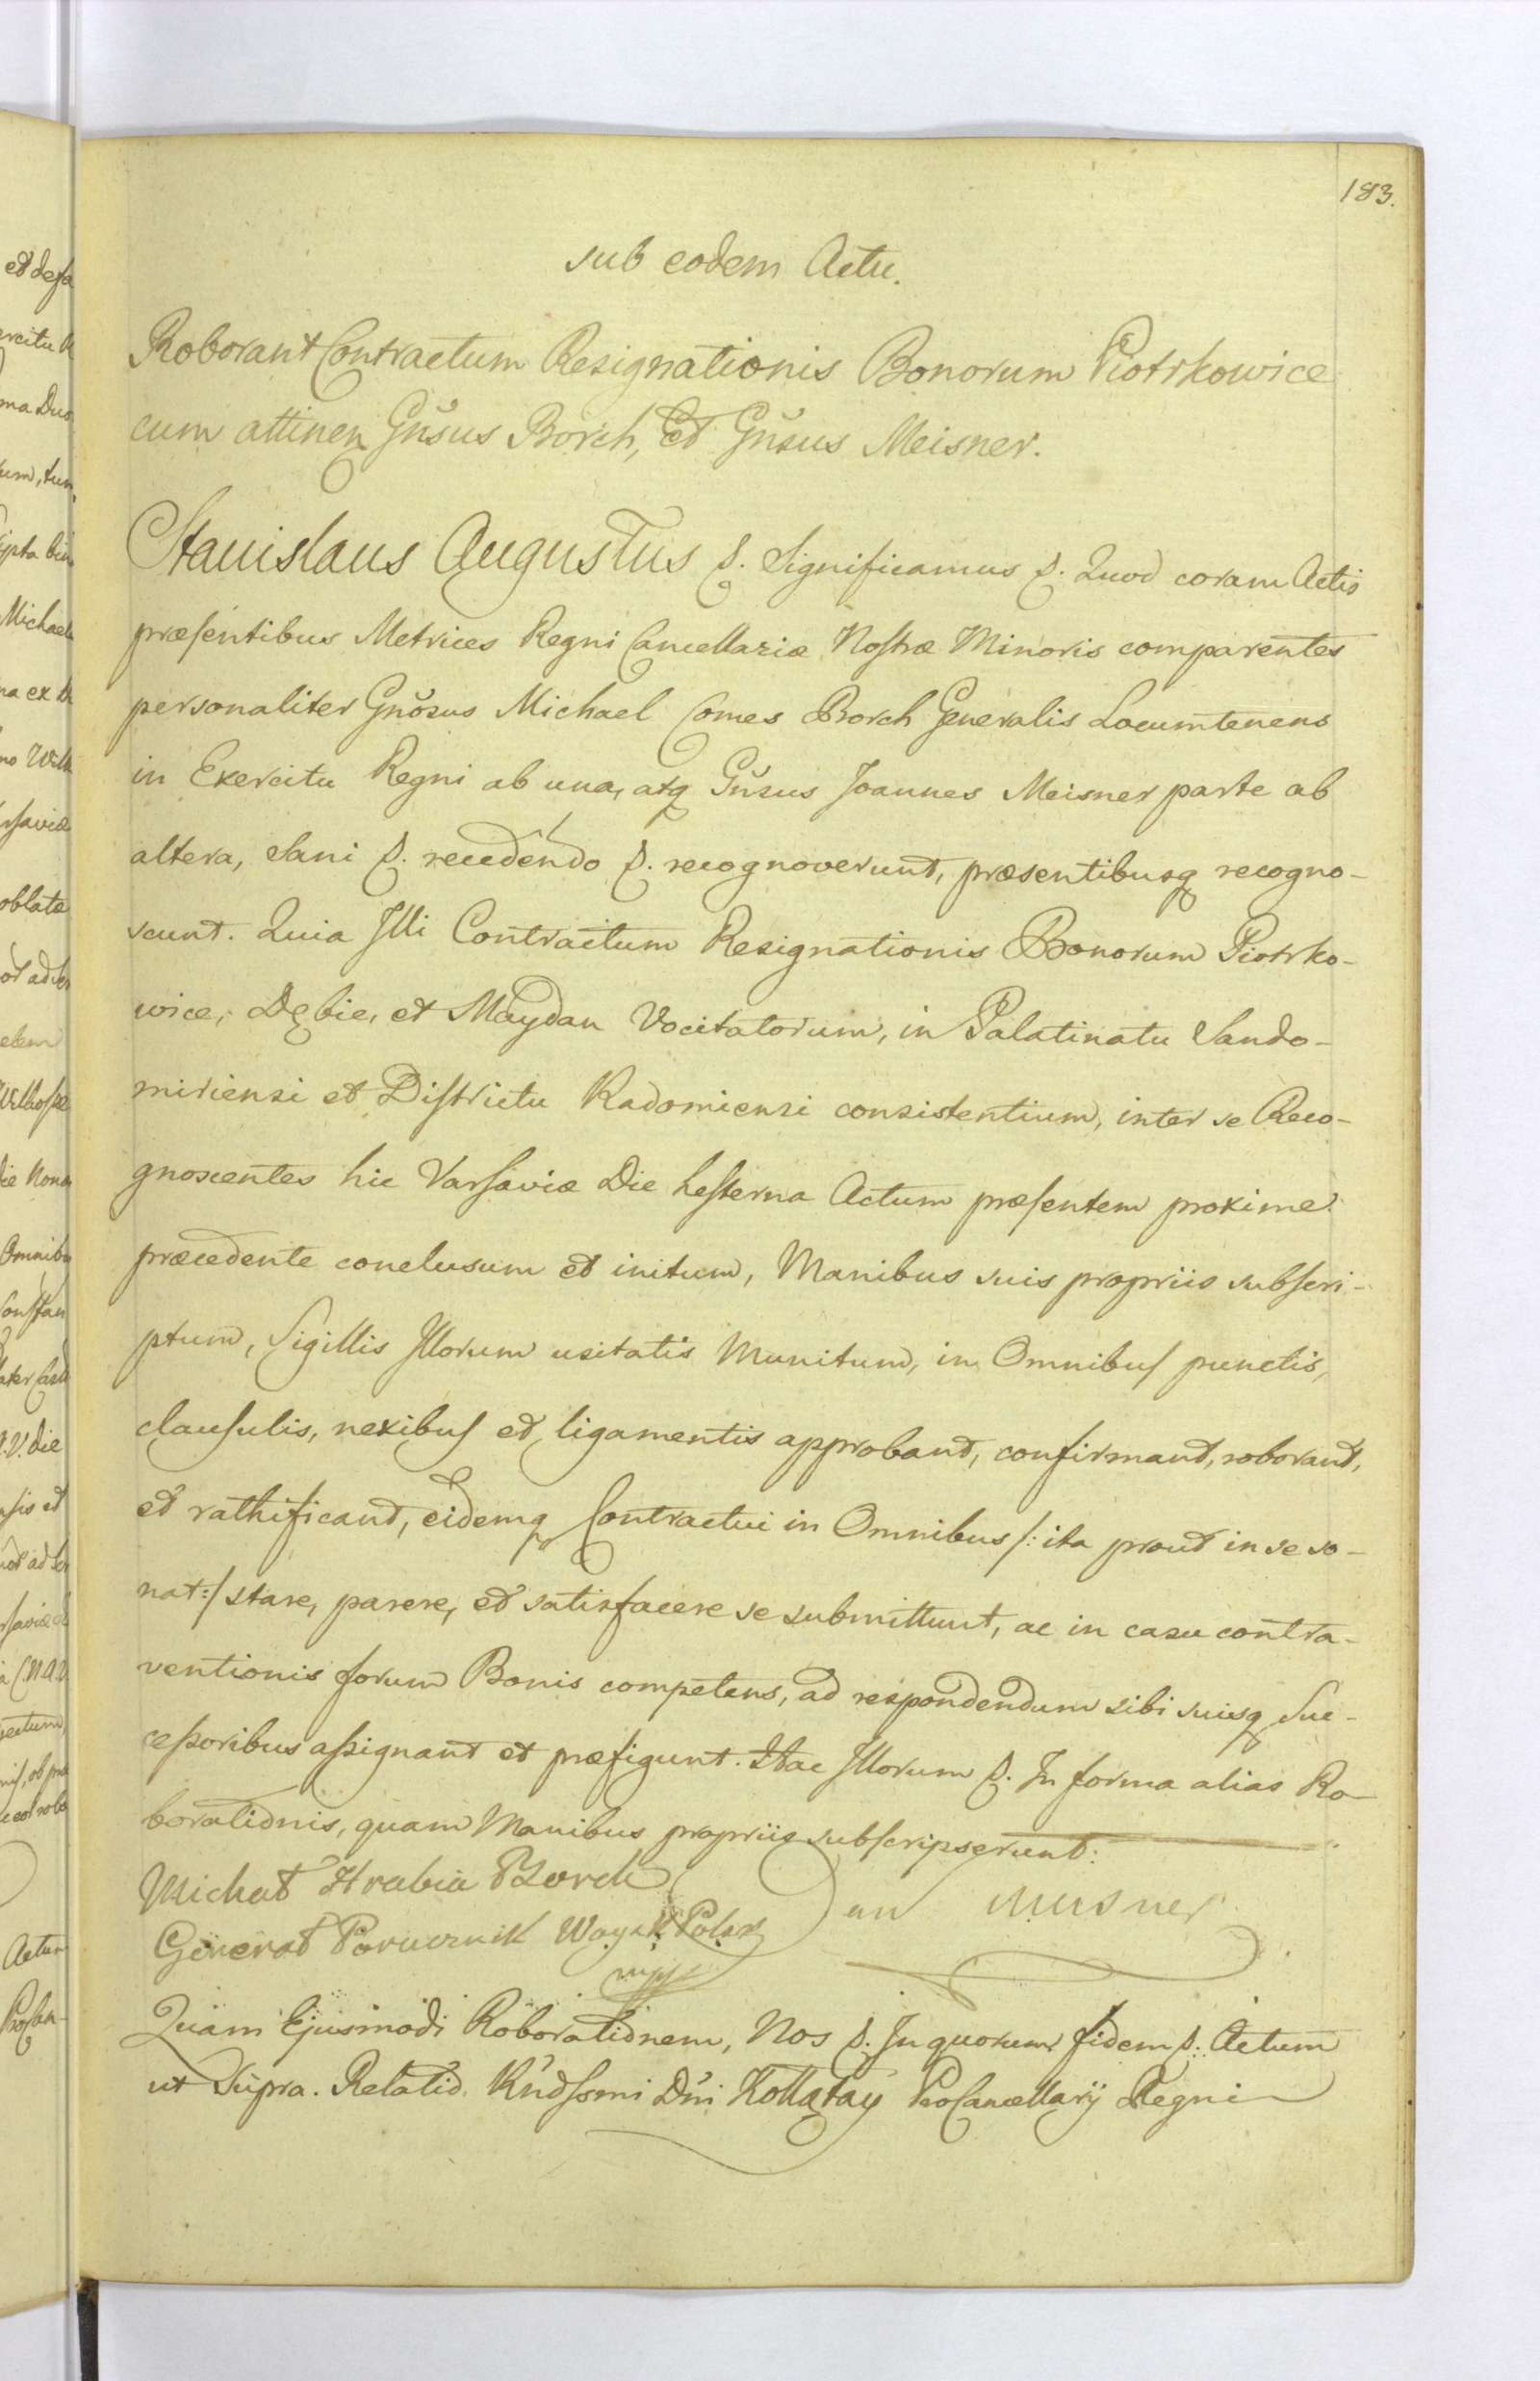 183.
sub eodem Actu.
Roborant Contractum Resignationis Bonorum Piotrkowice
cum attinen Gnsus Borch, Et Gnsus Meisner.
Stanislaus Augustus &. Significamus &. Quod coram Actis
præsentibus Metrices Regni Cancellariæ Nostræ Minoris comparentes
personaliter Gnosus Michael Comes Borch Generalis Locumtenens
in Exercitu Regni ab una, atq Gnsus Joannes Meisner parte ab
altera, Sani &. recedendo &. recognoverunt, præsentibusq recogno-
scunt. Quia Illi Contractum Resignationis Bonorum Piotrko-
wice, Dębie, et Maydan Vocitatorum, in Palatinatu Sando-
miriensi et Districtu Radomiensi consistentium, inter se Reco-
gnoscentes hic Varsaviæ Die hesterna Actum præsentem proxime
præcedente conclusum et initum, Manibus suis propriis subscri-
ptum, Sigillis Illorum usitatis Munitum, in Omnibus punctis,
clausulis, nexibus et ligamentis approbant, confirmant, roborant,
et rathificant, eidemq Contractui in Omnibus /: ita prout in se so-
nat :/ stare, parere, et satisfacere se submittunt, ac in casu contra-
ventionis forum Bonis competens, ad respondendum sibi suisq Suc-
cessoribus assignant et præfigunt. Hac Illorum &. In forma alias Ro-
borationis, quam Manibus propriis subscripserunt:
Michał Hrabia Borch
Jan Meisner
Generał Porucznik Woysk Polsk
mpp
Quam Ejusmodi Roborationem, Nos &. In quorum fidem &. Actum
ut Supra. Relatio Rndssmi Dni Kołłątay ProCancellarij Regni